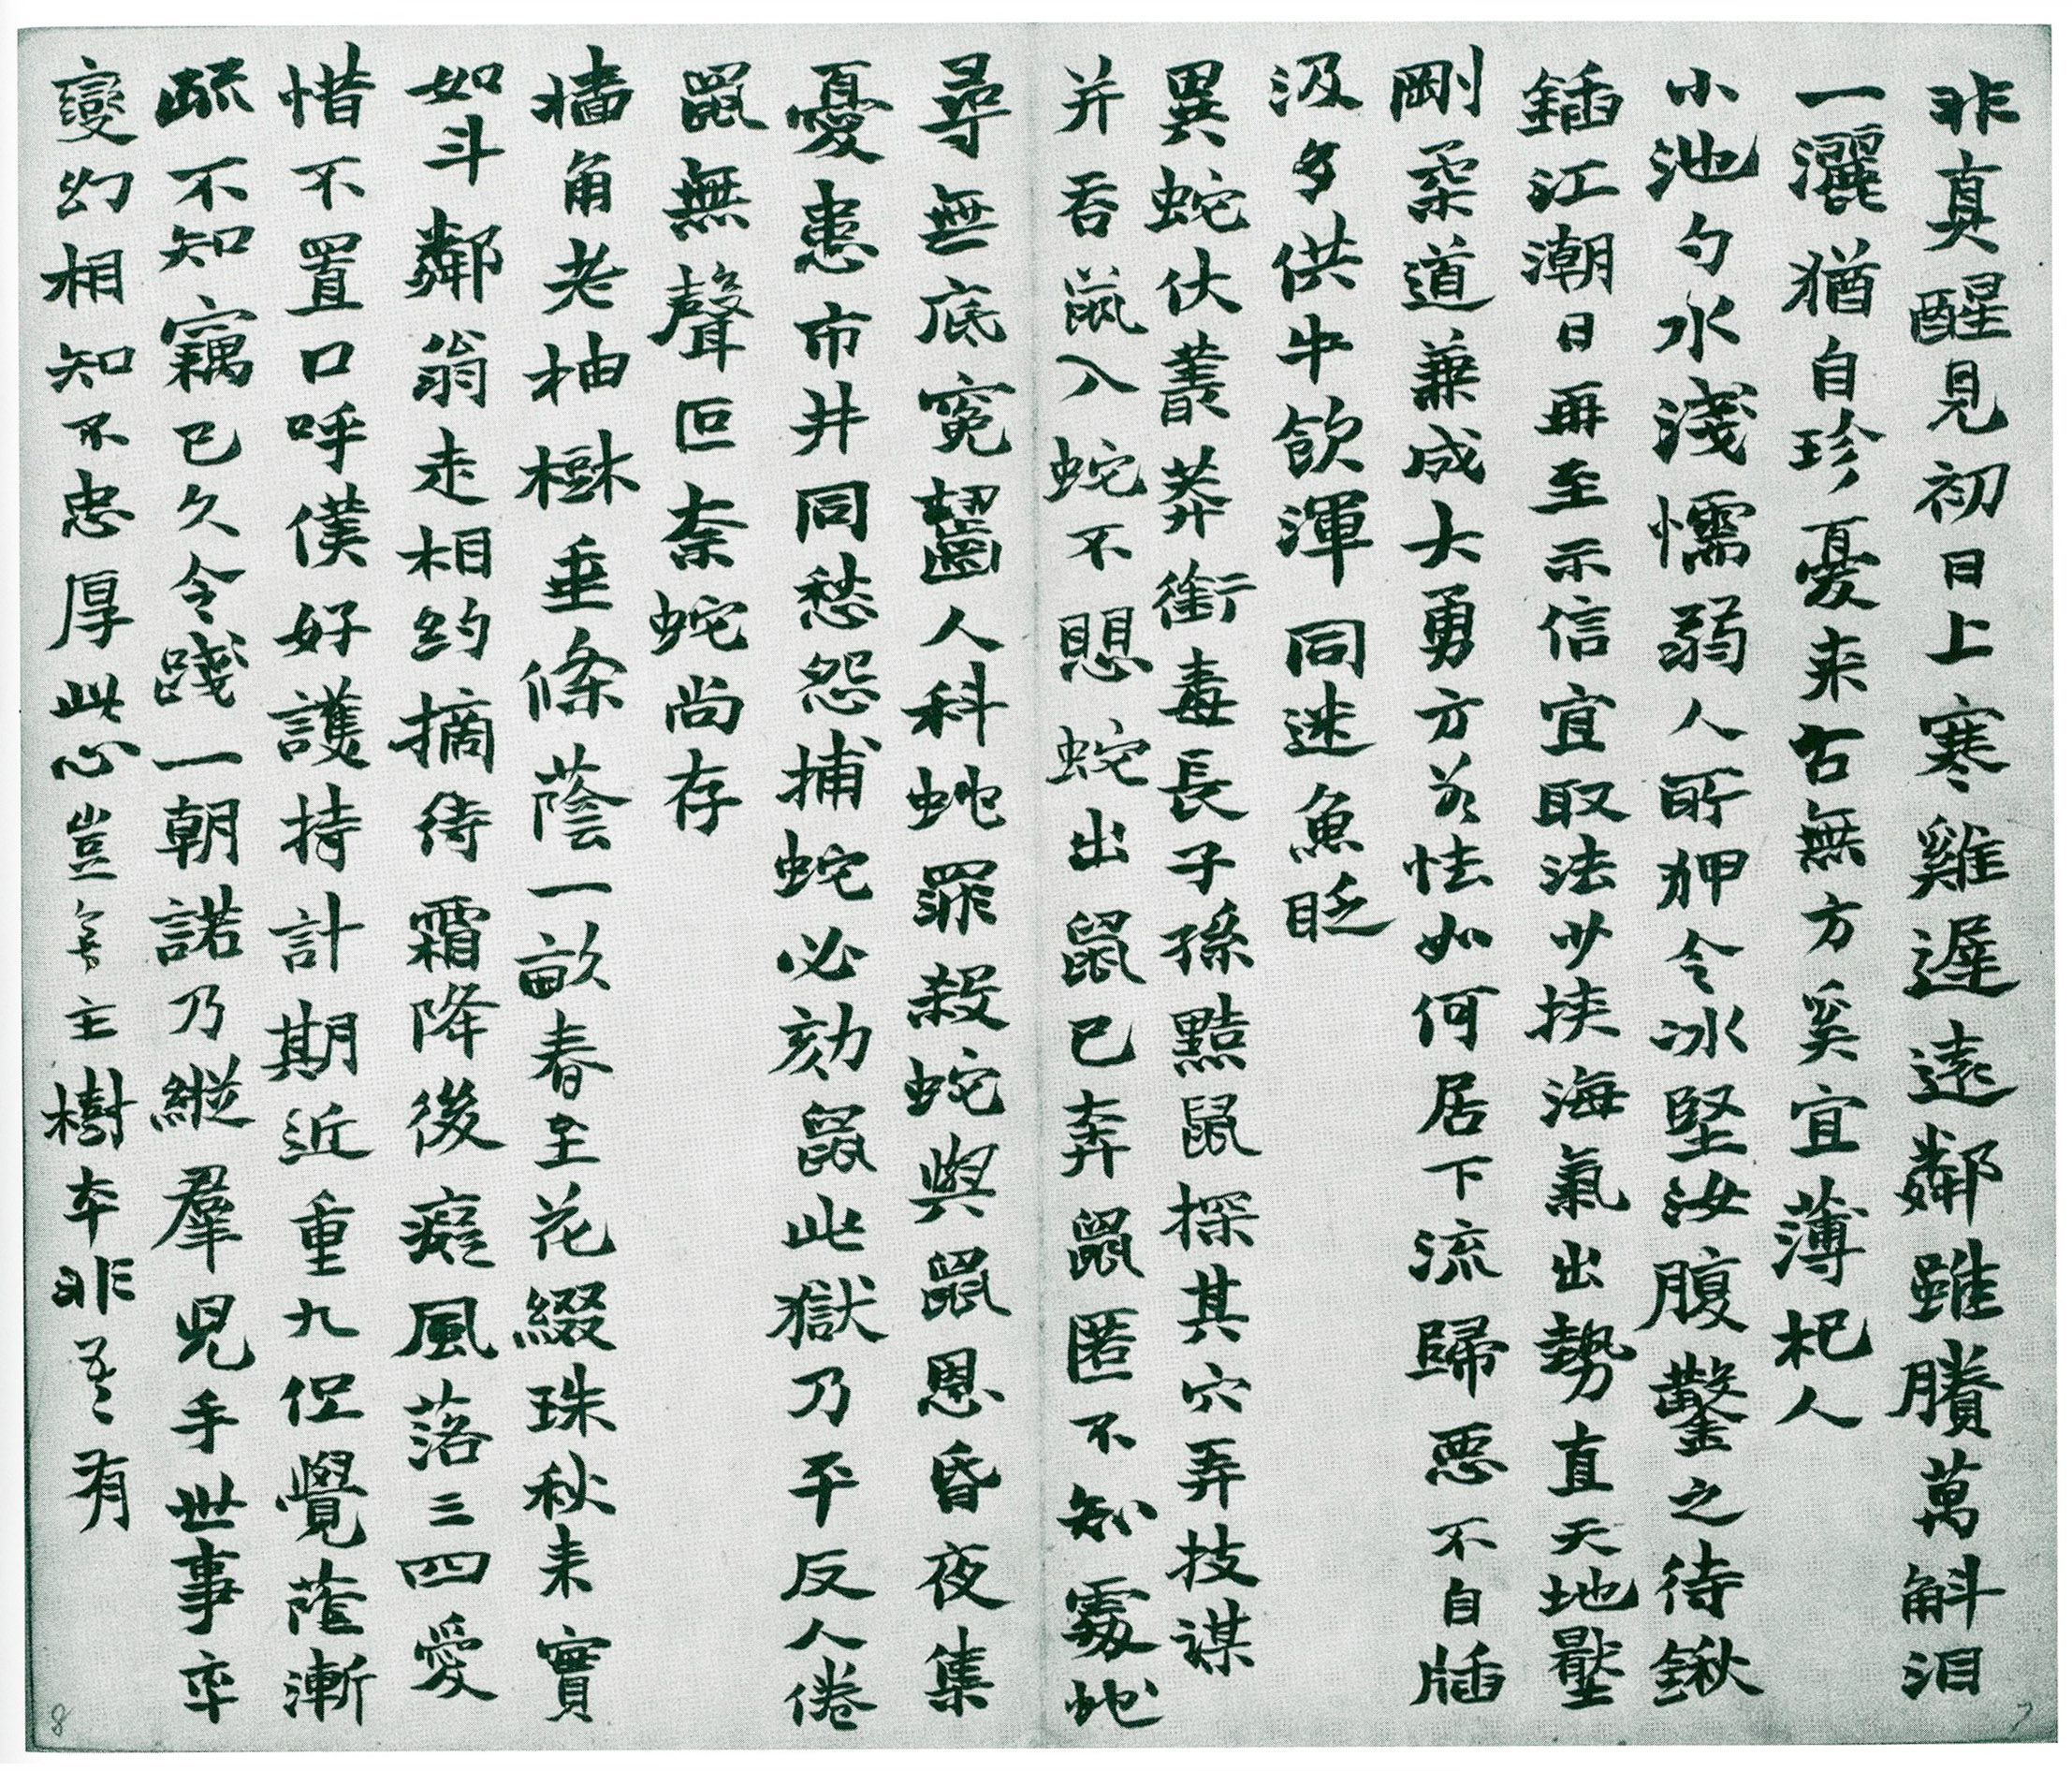 非真醒見初日上寒雞遲遠鄰雖賸萬斛泪
一灑猶自珍憂来古無方奚宜薄杞人
小池勺水淺懦弱人所狎令冰堅汝腹鑿之待鍬
鍤江潮日再至示信宜取法少挾海氣出勢直天地壓
剛柔道兼成大勇方若怯如何居下流歸惡不自牐
汲多供牛飲渾同迷魚眨
異蛇伏叢莽銜毒長子孫黠鼠探其穴弄技謀
并吞鼠入蛇不愳蛇出鼠已奔鼠匿不知處蛇
尋無底冤齧人科蛇罪殺蛇與鼠恩昏夜集
憂患市井同愁怨捕蛇必劾鼠此獄乃平反人倦
鼠無聲叵柰蛇尚存
墻角老柚樹垂條蔭一畝春至花綴珠秋来實
如斗鄰翁走相約摘待霜降後癡風落三四愛
惜不置口呼僕好護持計期近重九但覺蔭漸
疏不知竊已久令踐一朝諾乃縱羣兒手世事卒
變幻相知不忠厚此心豈無主樹本非吾有